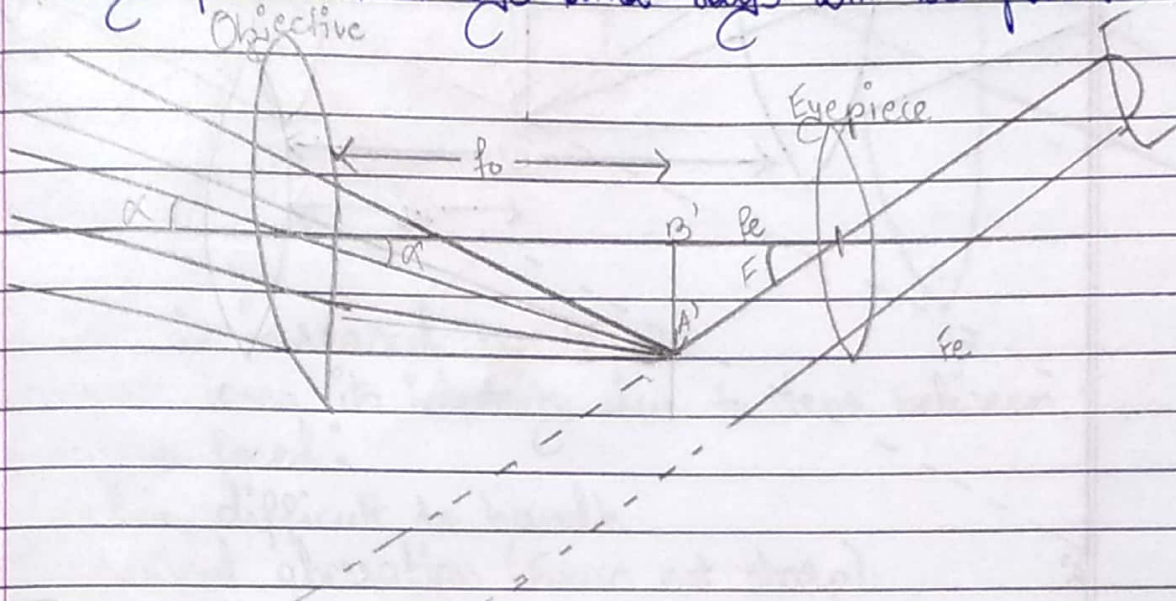 Objective
Eyepiece
fo
α
α
B'
fe
E
A'
Fe